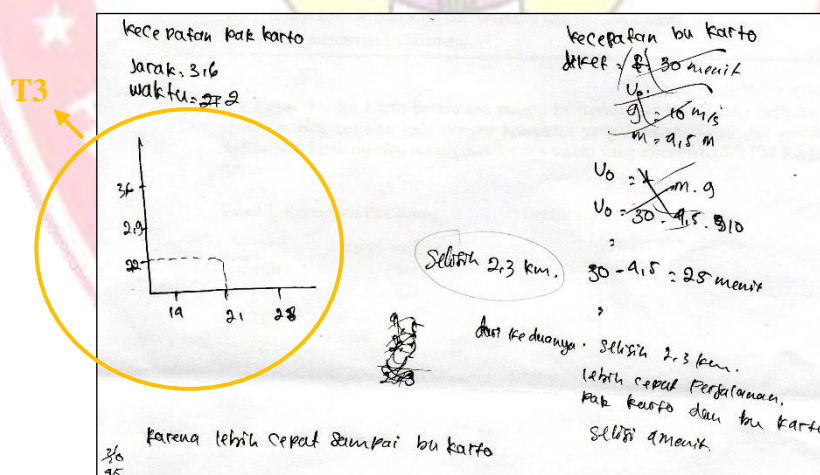 T3
kecepatan pak karto
Jarak: 3,6
waktu: 272
36
2,9
22
19
21
28
kecepatan bu karto
diket = 30 menit
U₀.
g = 10 m/s
m = 9,5 m
U₀ = m.g
U₀ = 30 . 9,5 . 10
30 - 9,5 = 25 menit
Selisih 2,3 km.
dari keduanya. selisih 2,3 km.
lebih cepat Perjalanan.
pak karto dan bu karto
selisi 4 menit.
karena lebih cepat sampai bu karto